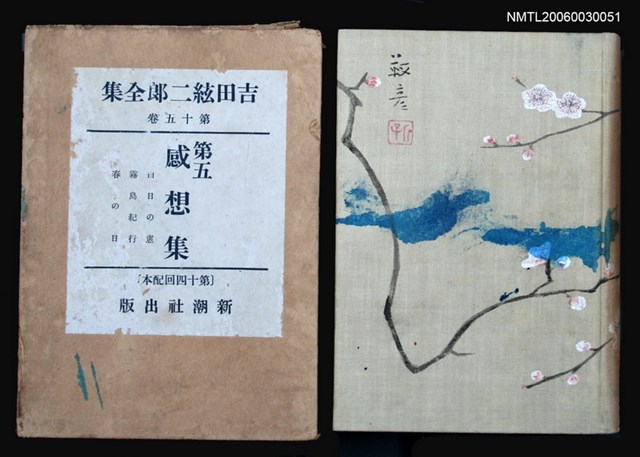 NMTL20060030051
吉田絃二郎全集
第十五巻
第五
感想集
白日の窓
霧島紀行
春の日
〔第十四回配本〕
新潮社出版